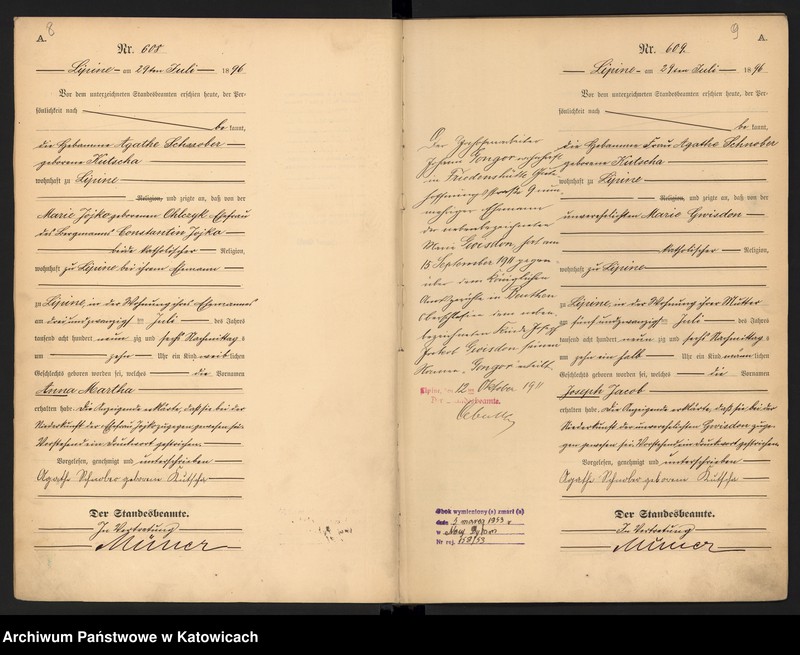 8
A.
Nr. 608
Lipine am 29ten Juli 1896
Vor dem unterzeichneten Standesbeamten erschien heute, der Per-
sönlichkeit nach
be kannt,
die Hebamme Agathe Schnober
geborene Kutscha
wohnhaft zu Lipine
Religion, und zeigte an, daß von der
Marie Jojko geborenen Ehefrau
des Bergmanns Constantin Jojko
beide katholischer Religion,
wohnhaft zu Lipine bei ihrem Ehemann
zu Lipine in der Wohnung ihres Ehemannes
am dreiundzwanzigsten Juli des Jahres
tausend acht hundert neun zig und sechs Nachmittags
um zehn Uhr ein Kind weib lichen
Geschlechts geboren worden sei, welches die Vornamen
Anna Martha
erhalten habe. Die Anzeigende erklärte, daß sie bei der
Niederkunft der Ehefrau Jojko zugegen gewesen sei.
Vorstehend ein Druckwort gestrichen.
Vorgelesen, genehmigt und unterschrieben
Agathe Schnober geborene Kutscha
Der Standesbeamte.
In Vertretung
9
A.
Nr. 609.
Lipine am 29ten Juli 1896
Vor dem unterzeichneten Standesbeamten erschien heute, der Per-
sönlichkeit nach
be kannt,
die Hebamme Frau Agathe Schnober
geborene Kutscha
wohnhaft zu Lipine
Religion, und zeigte an, daß von der
unverehelichten Marie Gwisdon
katholischer Religion,
wohnhaft zu Lipine
zu Lipine in der Wohnung ihrer Mutter
am fünfundzwanzigsten Juli des Jahres
tausend acht hundert neun zig und sechs Nachmittags
um zehn ein halb Uhr ein Kind männ lichen
Geschlechts geboren worden sei, welches die Vornamen
Joseph Jacob
erhalten habe. Die Anzeigende erklärte, daß sie bei der
Niederkunft der unverehelichten Gwisdon zuge-
gen gewesen sei. Vorstehend ein Druckwort gestrichen.
Vorgelesen, genehmigt und unterschrieben
Agathe Schnober geborene Kutscha
Der Standesbeamte.
In Vertretung
Der
Johann Gongor wohnhaft
in Friedenshütte,
Hoffnungstraße 9 nun-
mehriger Ehemann
der nebenbezeichneten
Marie Gwisdon, hat am
15 September 1911 gegen-
über dem Königlichen
Amtsgerichte in Beuthen
Oberschlesien dem neben-
bezeichneten Kinde Joseph
Jakob Gwisdon seinen
Namen Gongor erteilt.
Lipine, am 12 Oktober 1911
Der Standesbeamte.
Obok wymieniony(a) zmarł(a)
dnia 5 marca 1953 r
w Nowy Bytom
Nr rej. 158/53
Archiwum Państwowe w Katowicach